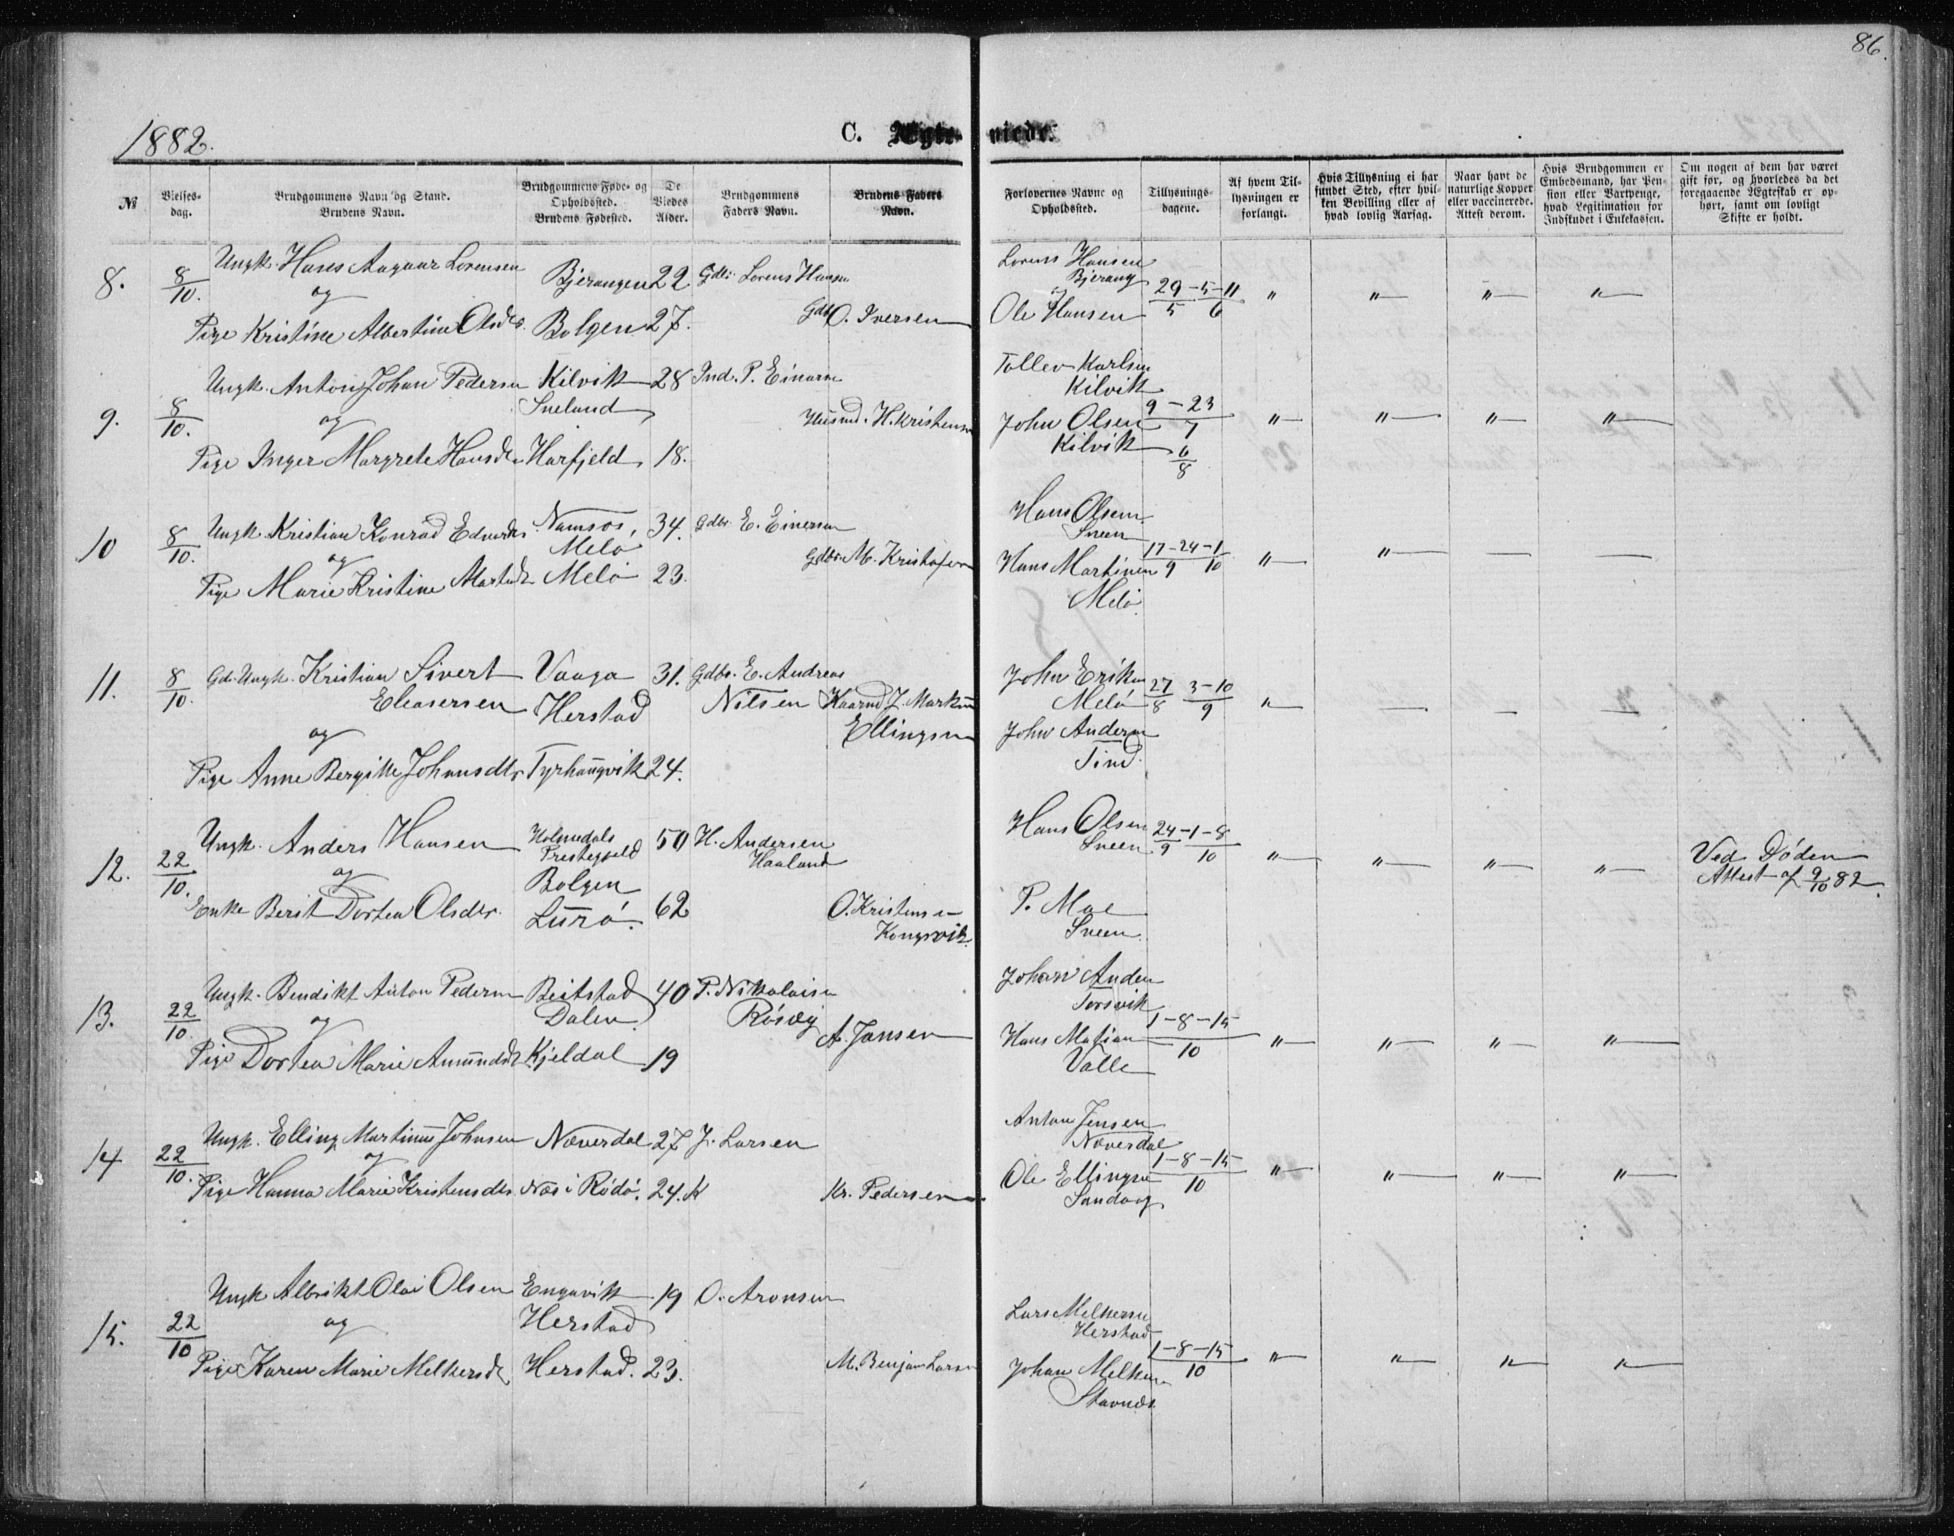 86.
1882.
C. Ægte- viede.
№
Vielses-dag.
Brudgommens Navn og Stand. Brudens Navn.
Brudgommens Føde- og Opholdssted. Brudens Fødested.
De Viedes Alder.
Brudgommens Faders Navn.
Brudens Faders Navn.
Forlovernes Navne og Opholdssted.
Tillysnings-dagene.
Af hvem Tillysningen er forlangt.
Hvis Tillysning ei har fundet Sted, efter hvilken Bevilling eller af hvad lovlig Aarsag.
Naar havt de naturlige Kopper eller vaccinerede. Attest derom.
Hvis Brudgommen er Embedsmand, har Pension eller Vartpenge, hvad Legitimation for Indskudet i Enkekassen.
Om nogen af dem har været gift før, og hvorledes da det foregaaende Ægteskab er ophørt, samt om lovligt Skifte er holdt.
8. 8/10. Ungk. Hans Aagaar Lorensen Bjerangen 22 Gdbr. Lorens Hansen
og
Pige Kristine Albertine Olsdr. Bolgen 27. Gdb. O. Iversen
Lorens Hansen
Bjerang
og
Ole Hansen
29-5-11
5 6
" " " "
9. 8/10. Ungk. Anton Johan Pedersen Kilvik 28 Ind. P. Einarsen
og Sneland
Pige Inger Margrete Hansdr Harfjeld 18. Husmd. H. Kristensen
Tollev Karlsen
Kilvik
John Olsen
Kilvik
9-23
7
6
8
" " " "
10 8/10. Ungk Kristian Konrad Edvards Namsos, 34. Gdbr. E. Einersen
og Melø
Pige Marie Kristine Martedr Melø 23. Gdbr. M. Kristofersen
Hans Olsen
Sveen
Hans Martinen
Melø.
17-24-1
9 10
" "
11. 8/10. Gd. Ungk. Kristian Sivert Vaaga 31. Gdbr. E. Andreas
Eleasersen Herstad Nilsen
og
Pige Anne Bergitte Johansdtr Tyrhaugvik 24. J. Markus
Ellingsen
John Eriksen
Melø
John Andersen
Tind.
27 3-10
8 9
"
12. 22/10. Ungk. Anders Hansen Holmedals 50 H. Andersen
Prestegjeld Haaland
og Bolgen
Enke Berit Dortea Olsdtr. Lurø. 62 O. Kristensen
Kongsvik.
Hans Olsen
Sveen
P. Moe
Sveen.
24-1-8
9 10
" " " "
Ved Døden
Attest af 9/10 82.
13. 22/10. Ungk. Bendikt Anton Pedersen Beitstad 40 P. Nikolaisen
og Dalen Røsveg
Pige Dortea Marie Amundsdr Kjeldal 19 A. Jansen
Johan Anden
Torsvik
Hans Matian
Valle
1-8-15
10
" " " "
14 22/10. Ungk. Elling Martinus Johnsen Næverdal 27 J. Larsen
og
Pige Hanna Marie Kristensdtr. Næs i Rødø. 24. K Kr. Pedersen
Anton Jensen
Næverdal
Ole Ellingsen
Sandvig
1-8-15
10
" " " "
15. 22/10 Ungk Albrikt Olai Olsen Engavik 19 O. Aronsen
og Herstad
Pige Karen Marie Melkersdr Herstad. 23. M. Benjam Larsen
Lars Melkersen
Herstad
Johan Melkersen
Stavnes
1-8-15
10
" " " "